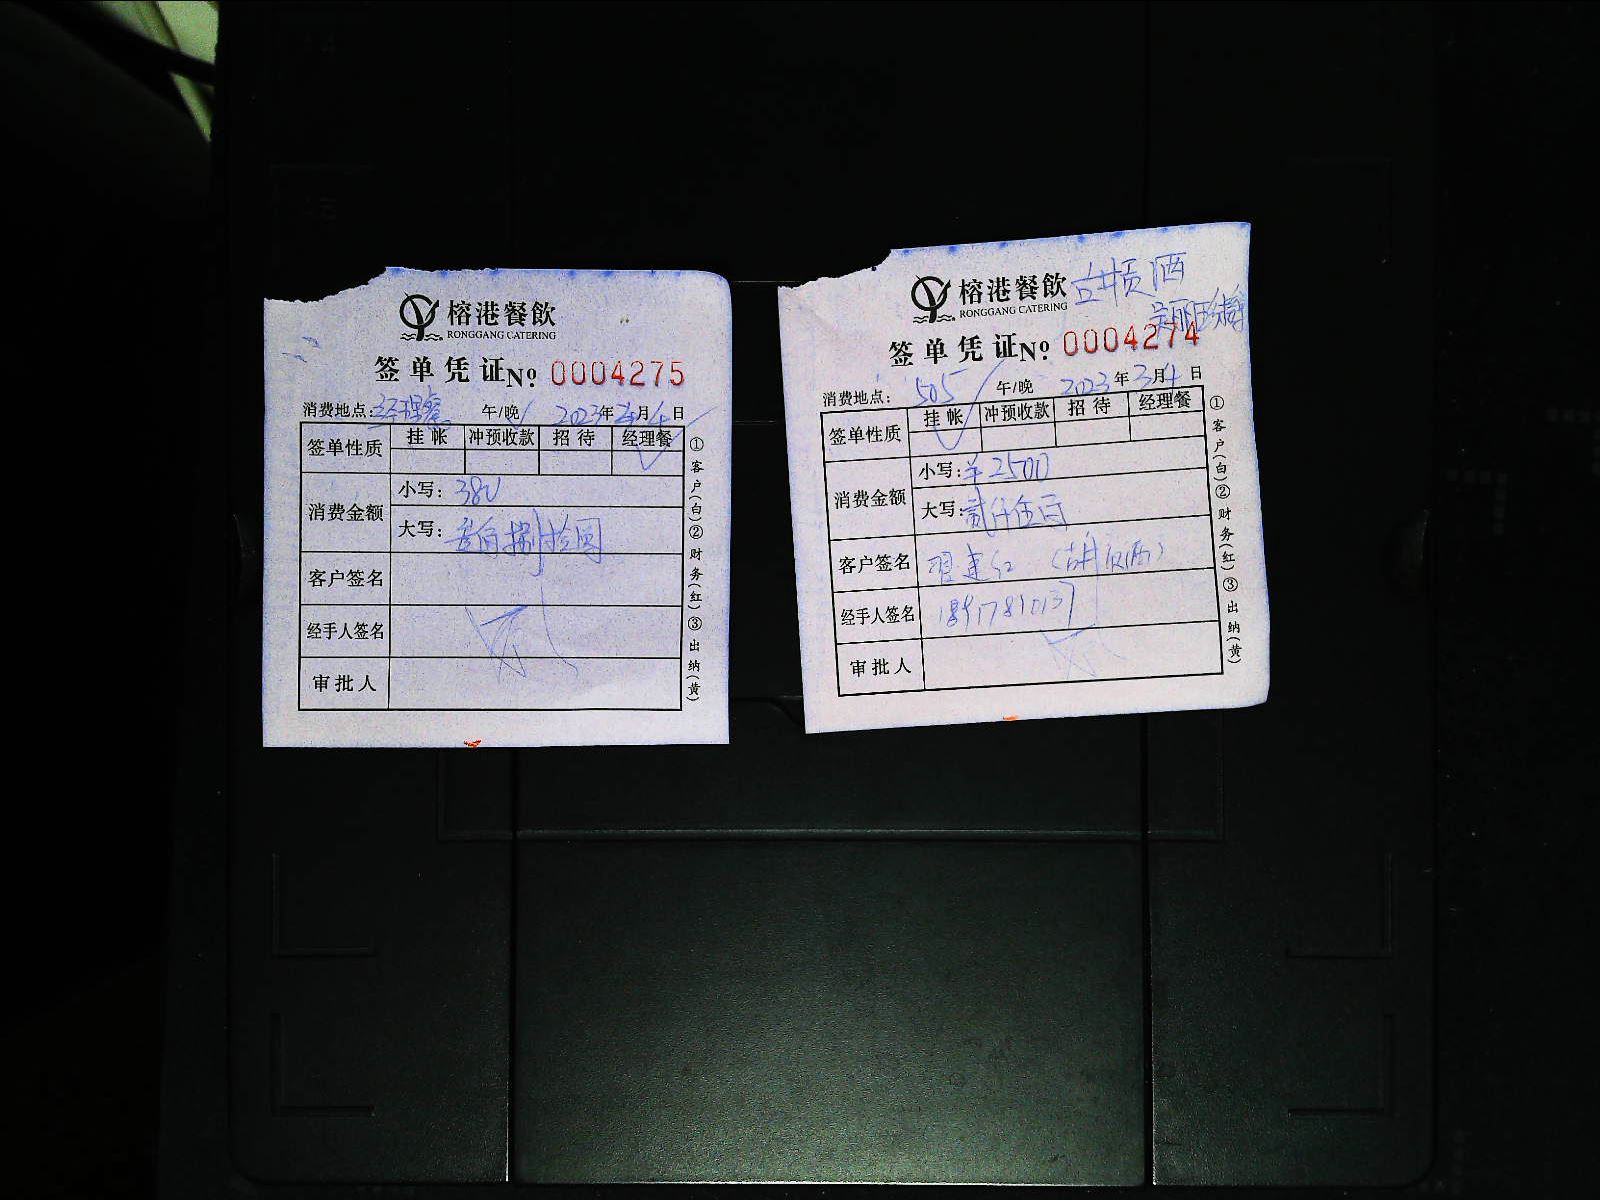 榕港餐飲
RONGGANG CATERING
签单凭证No 0004275
消费地点:经理餐 午/晚 2023年3月4日
签单性质 挂帐 冲预收款 招待 经理餐
消费金额
小写: 380
大写: 叁佰捌拾圆
客户签名
经手人签名
审批人
①客户(白)②财务(红)③出纳(黄)
榕港餐飲
RONGGANG CATERING
签单凭证No 0004274
消费地点: 505 午/晚 2023年3月4日
签单性质 挂帐 冲预收款 招待 经理餐
消费金额
小写:¥2500
大写:贰仟伍百
客户签名
经手人签名 18917810137
审批人
①客户(白)②财务(红)③出纳(黄)